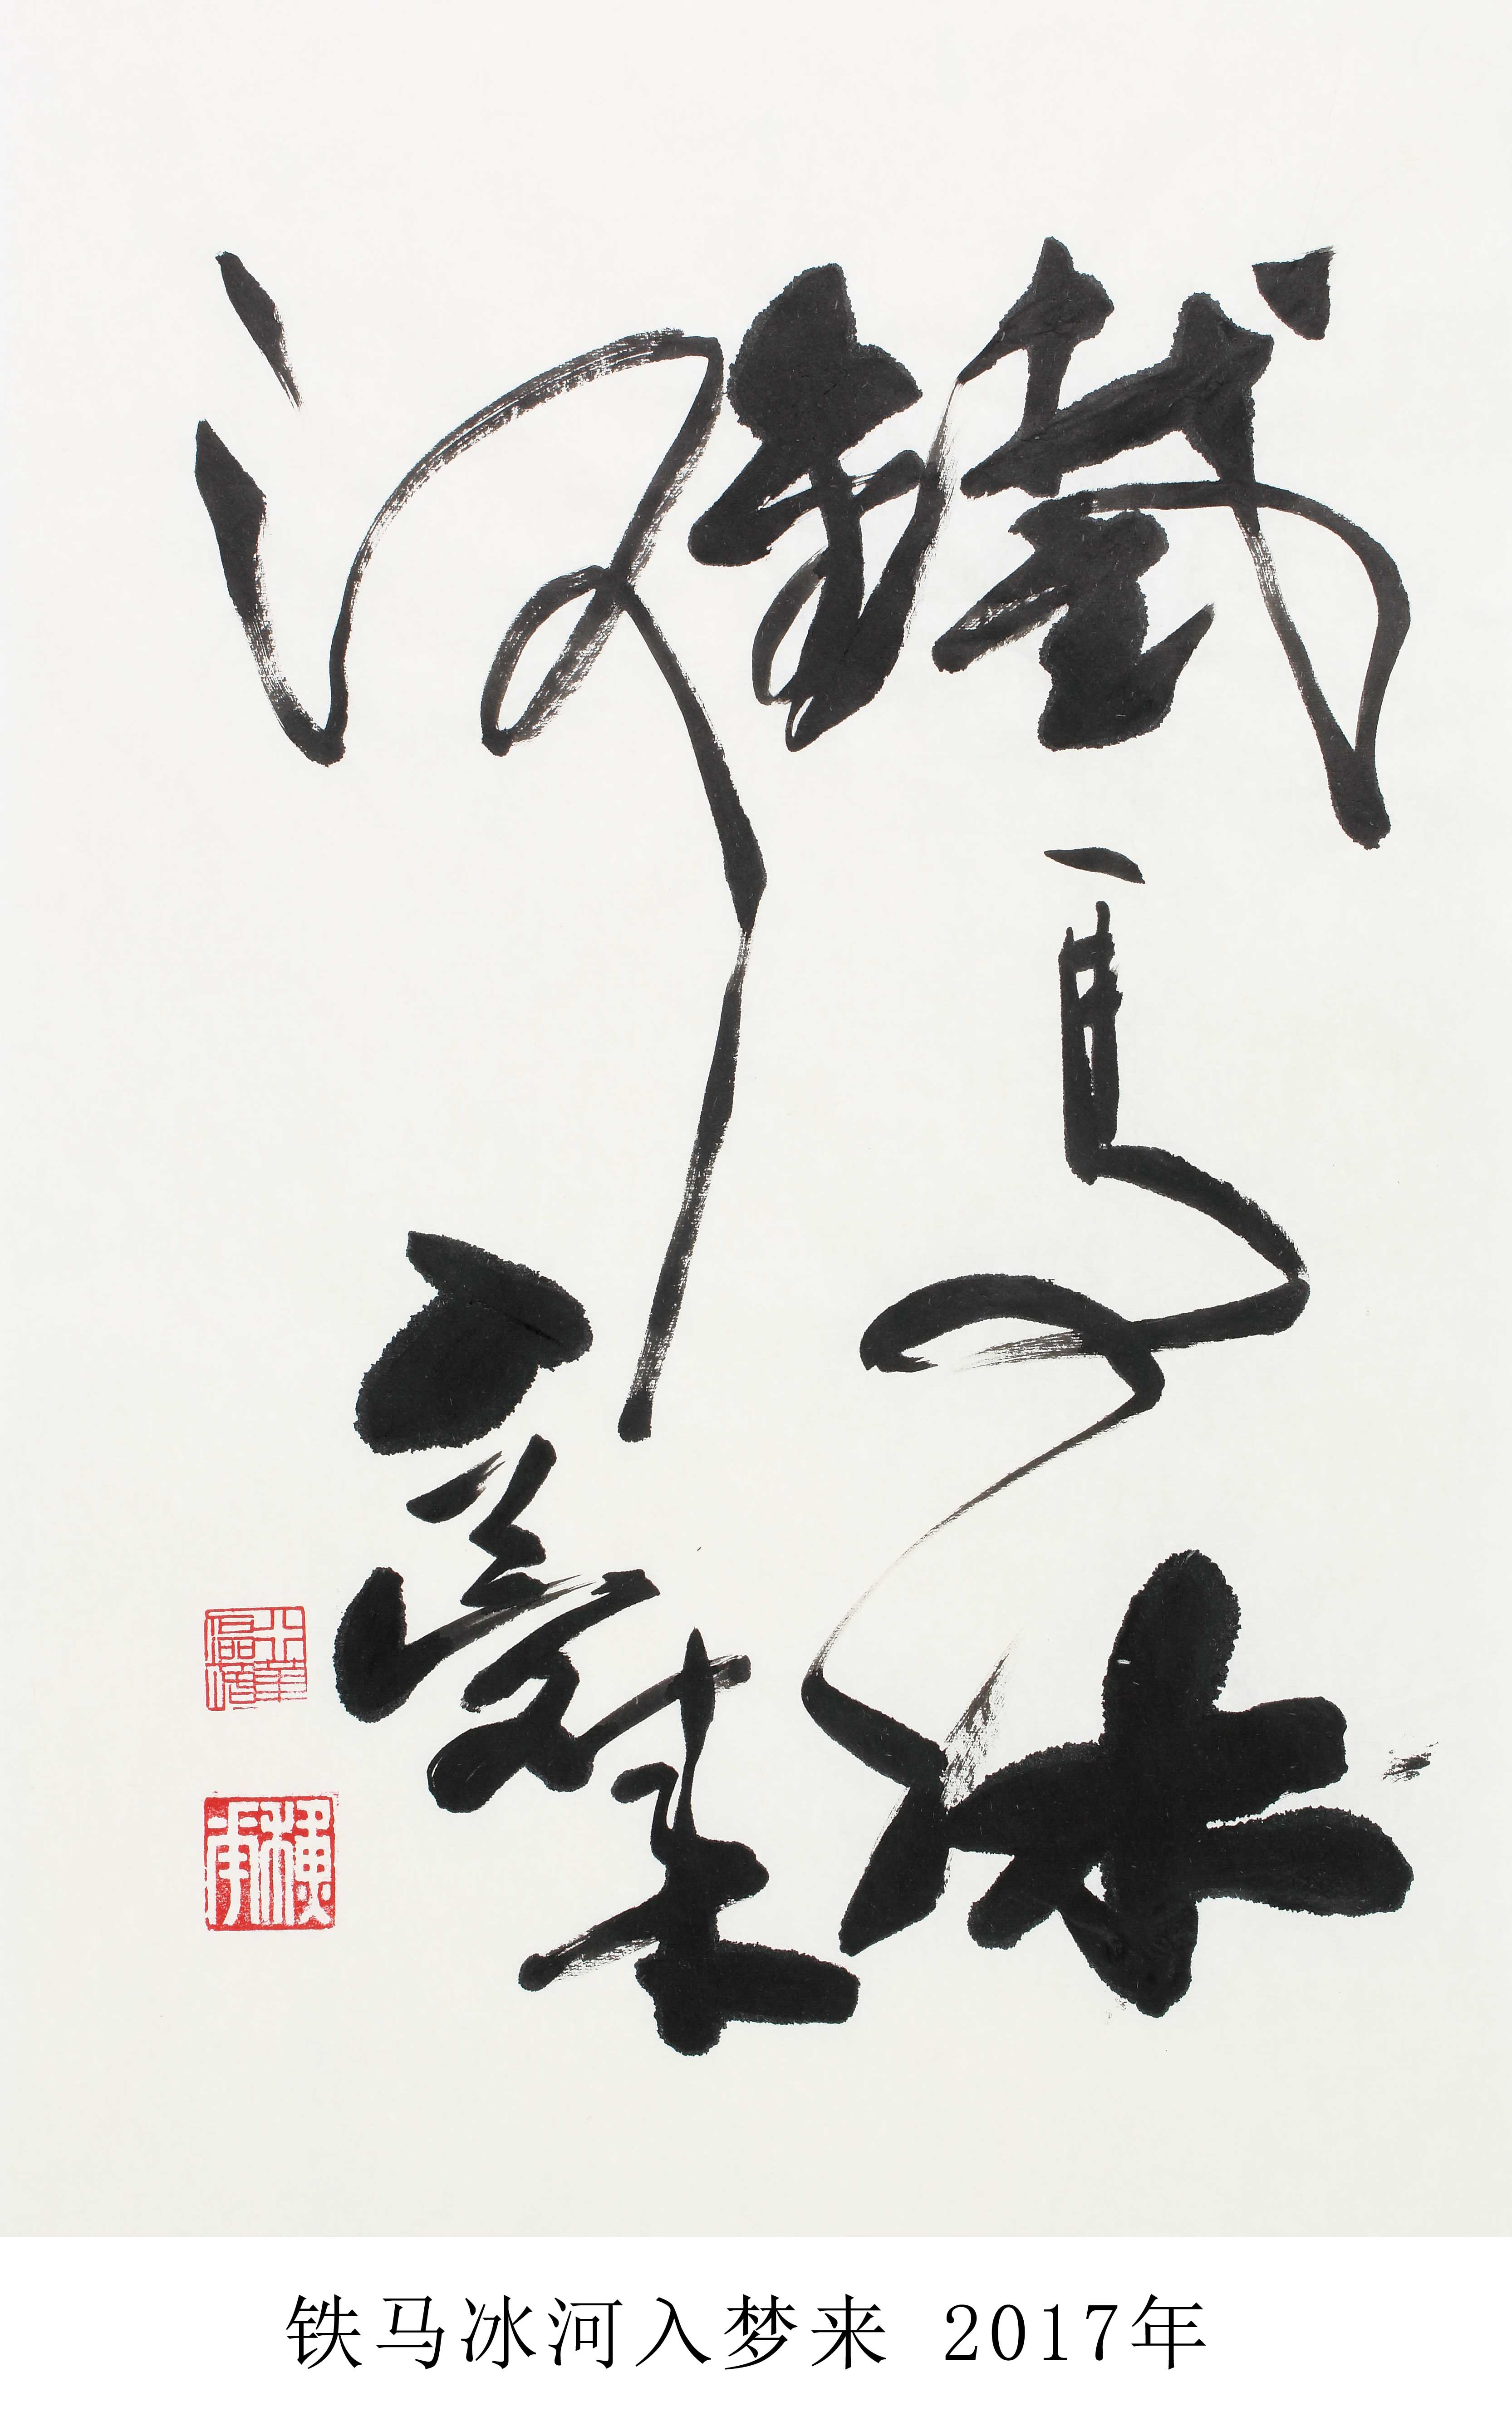 鐵馬冰
河入夢来
铁马冰河入梦来 2017年